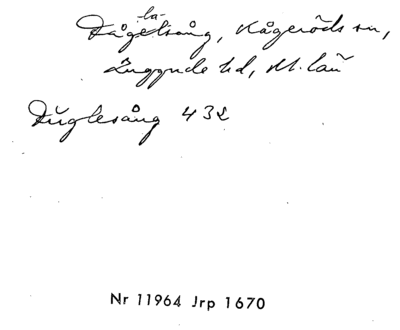 -la-
Fågelsång, Kågeröds sn,
Luggude hd, M. län
Fŭglesång 432
Nr 11964 Jrp 1670